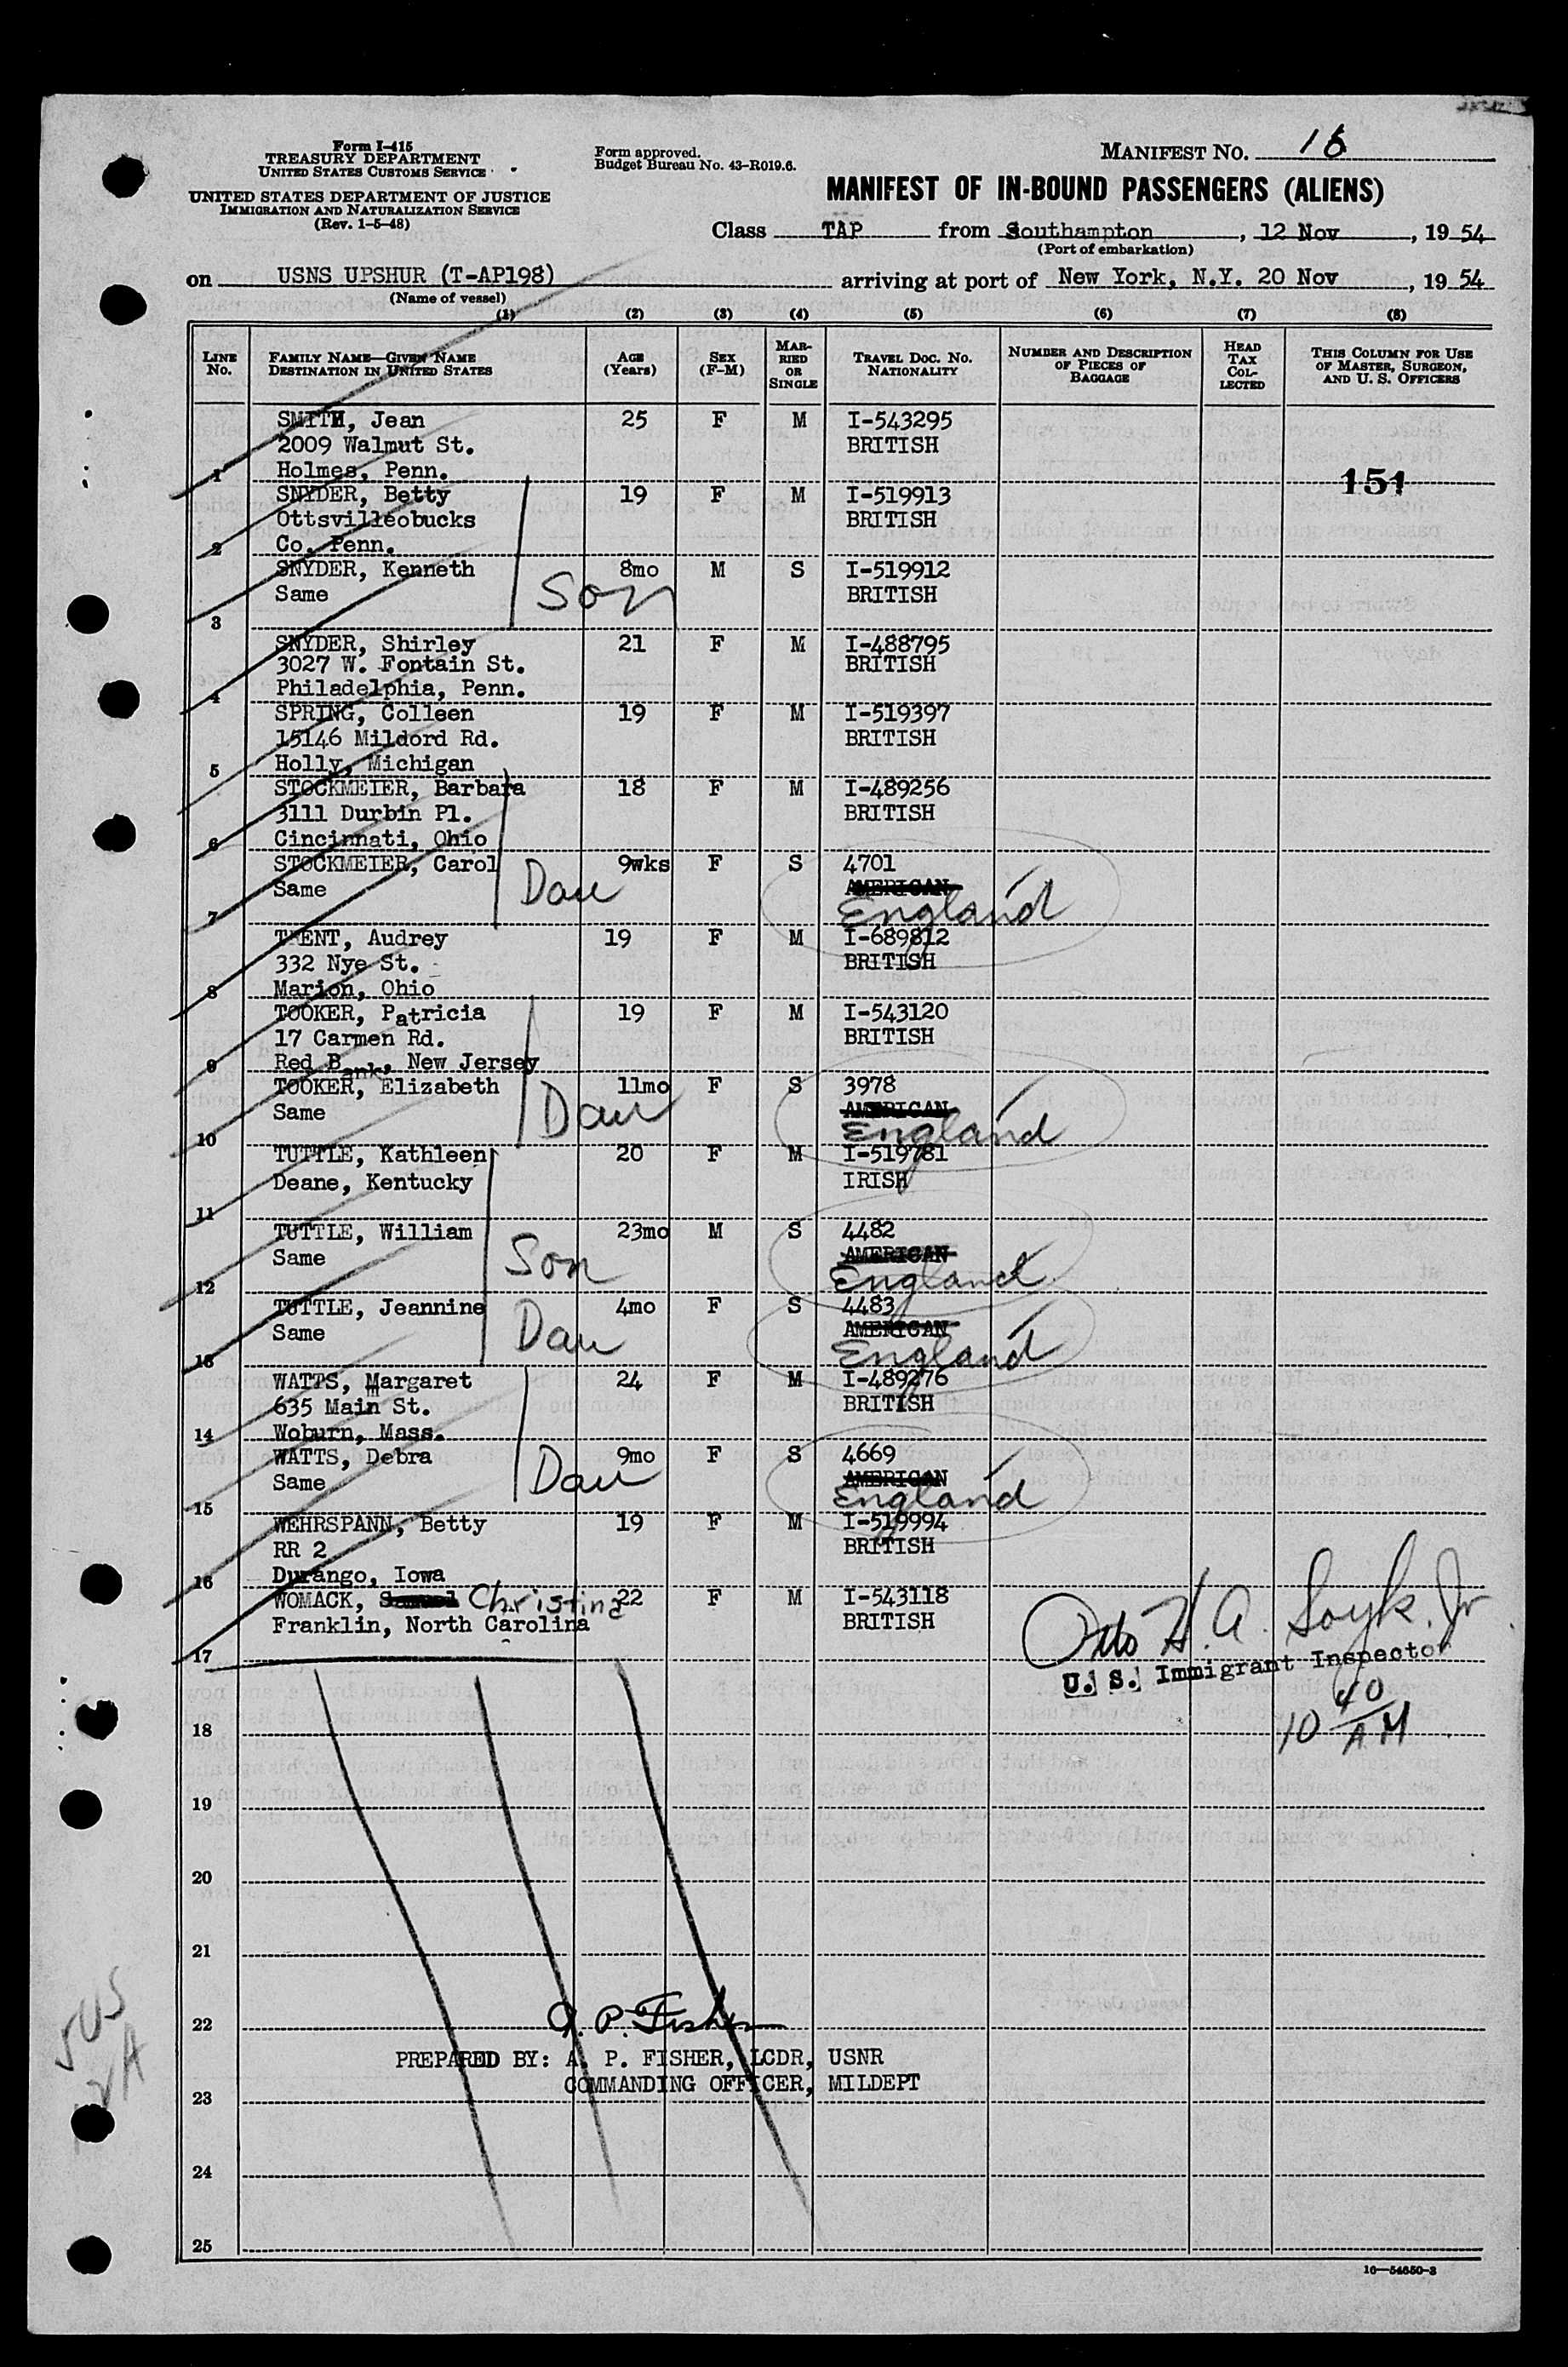 Form I-415
TREASURY DEPARTMENT
UNITED STATES CUSTOMS SERVICE
UNITED STATES DEPARTMENT OF JUSTICE
IMMIGRATION AND NATURALIZATION SERVICE
(Rev. 1-5-48)
Form approved.
Budget Bureau No. 43-R019.6.
MANIFEST NO. 16
MANIFEST OF IN-BOUND PASSENGERS (ALIENS)
Class TAP from Southampton, 12 Nov, 1954
(Port of embarkation)
on USNS UPSHUR (T-AP198) arriving at port of New York, N.Y. 20 Nov, 1954
(Name of vessel)
(1) (2) (3) (4) (5) (6) (7) (8)
LINE NO.
FAMILY NAME—GIVEN NAME
DESTINATION IN UNITED STATES
AGE (Years)
SEX (F-M)
MARRIED OR SINGLE
TRAVEL DOC. NO.
NATIONALITY
NUMBER AND DESCRIPTION OF PIECES OF BAGGAGE
HEAD TAX COLLECTED
THIS COLUMN FOR USE OF MASTER, SURGEON, AND U. S. OFFICERS
SMITH, Jean 25 F M I-543295
2009 Walmut St. BRITISH
1 Holmes, Penn. 151
SNYDER, Betty 19 F M I-519913
Ottsvilleobucks BRITISH
2 Co. Penn.
SNYDER, Kenneth 8mo M S I-519912
Same Son BRITISH
3
SNYDER, Shirley 21 F M I-488795
3027 W. Fontain St. BRITISH
4 Philadelphia, Penn.
SPRING, Colleen 19 F M I-519397
15146 Mildord Rd. BRITISH
5 Holly, Michigan
STOCKMEIER, Barbara 18 F M I-489256
3111 Durbin Pl. BRITISH
6 Cincinnati, Ohio
STOCKMEIER, Carol 9wks F S 4701
Same Dau AMERICAN
7 England
TRENT, Audrey 19 F M I-689812
332 Nye St. BRITISH
8 Marion, Ohio
TOOKER, Patricia 19 F M I-543120
17 Carmen Rd. BRITISH
9 Red Bank, New Jersey
TOOKER, Elizabeth 11mo F S 3978
Same Dau AMERICAN
10 England
TUTTLE, Kathleen 20 F M I-519781
Deane, Kentucky IRISH
11
TUTTLE, William 23mo M S 4482
Same Son AMERICAN
12 England
TUTTLE, Jeannine 4mo F S 4483
Same Dau AMERICAN
13 England
WATTS, Margaret 24 F M I-489276
635 Main St. BRITISH
14 Woburn, Mass.
WATTS, Debra 9mo F S 4669
Same Dau AMERICAN
15 England
WEHRSPANN, Betty 19 F M I-519994
RR 2 BRITISH
16 Durango, Iowa
WOMACK, Samuel Christina 22 F M I-543118
Franklin, North Carolina BRITISH
17
Otto H. A. Soyk. Jr
U. S. Immigrant Inspector
10 40 AM
18
19
20
21
22 A. P. Fisher
PREPARED BY: A. P. FISHER, LCDR, USNR
COMMANDING OFFICER, MILDEPT
23
24
25
5 US
12 A
16—54650-3